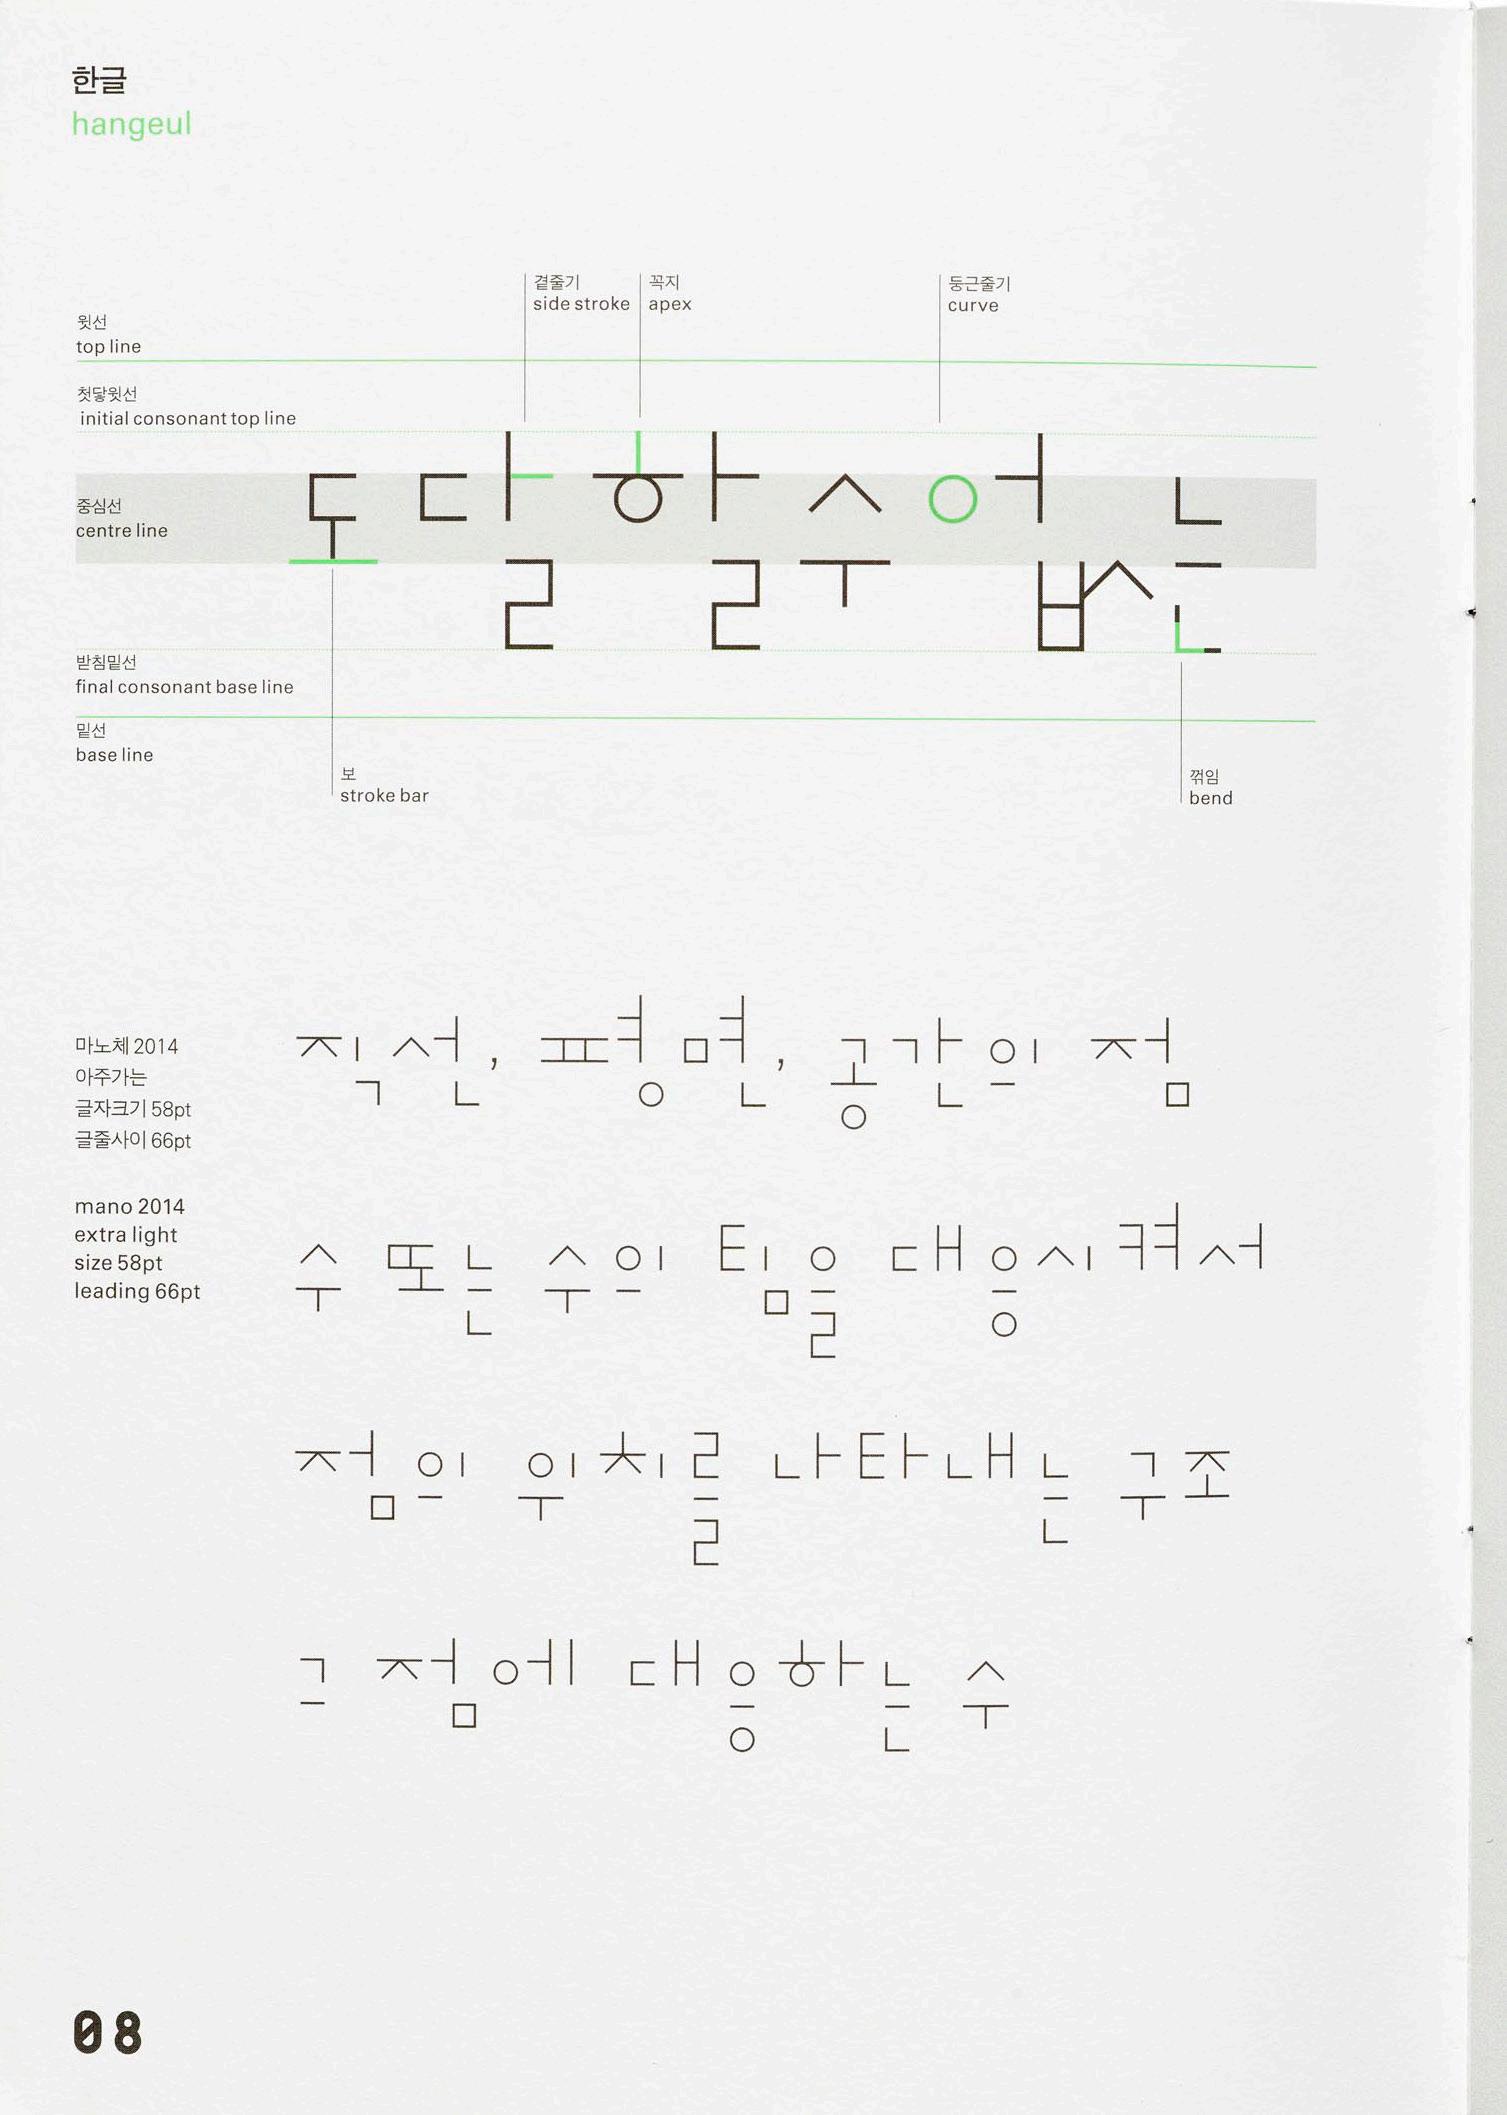 한글
hangeul
곁줄기
side stroke
꼭지
apex
둥근줄기
curve
윗선
top line
첫닿윗선
initial consonant top line
중심선
centre line
도달할수없는
받침밑선
final consonant base line
밑선
base line
보
stroke bar
꺾임
bend
마노체 2014
아주가는
글자크기 58pt
글줄사이 66pt
mano 2014
extra light
size 58pt
leading 66pt
직선, 평면, 공간의 점
수 또는 수의 팀을 대응시켜서
점의 위치를 나타내는 구조
그 점에 대응하는 수
08